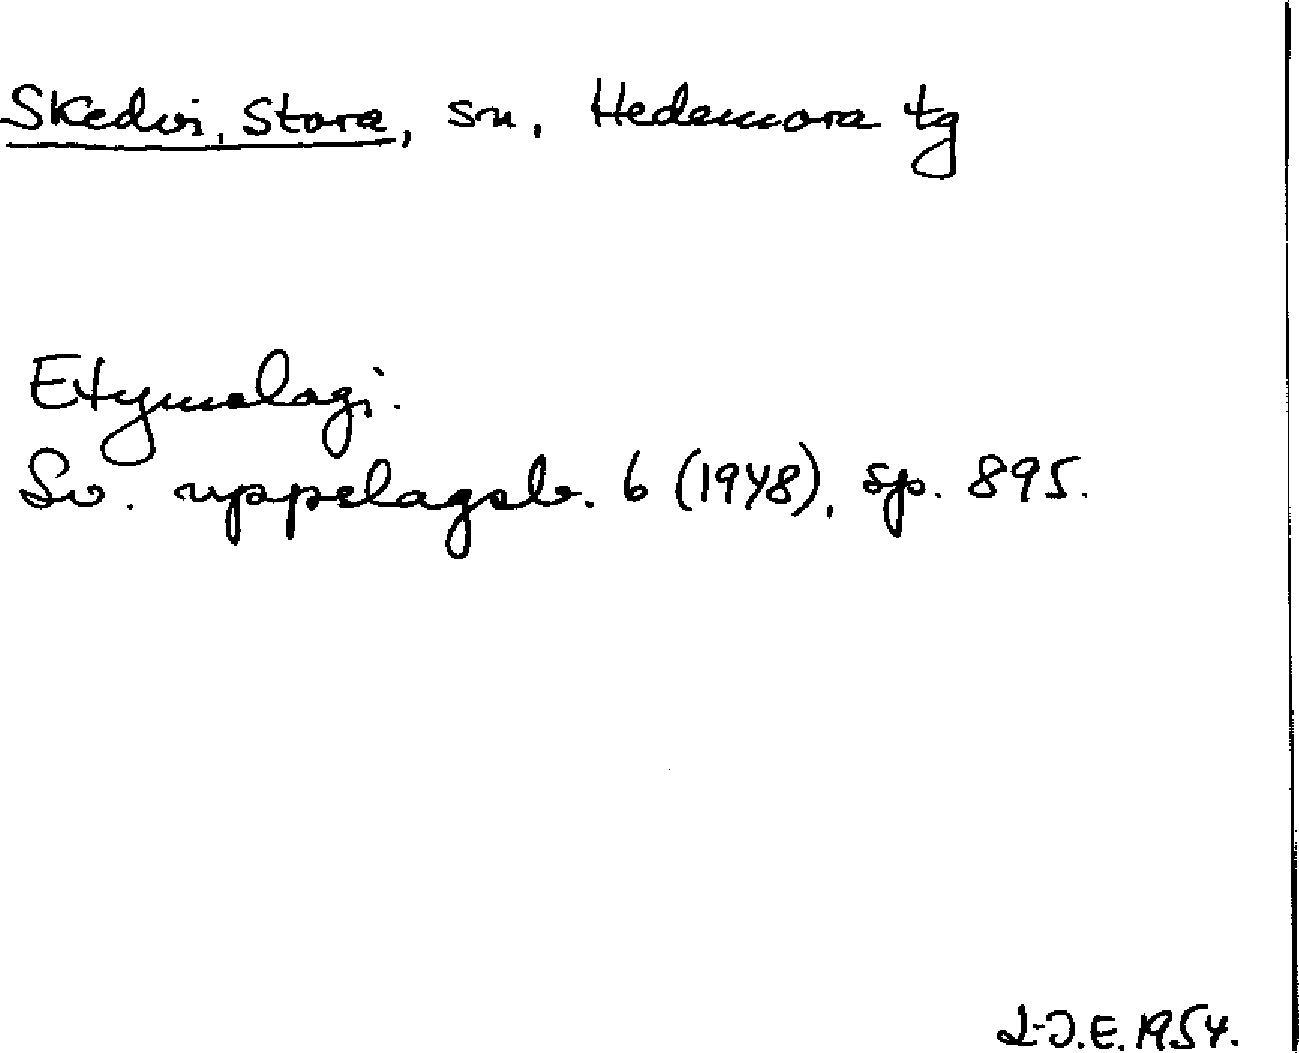 Skedvi, Stora, sn, Hedemora tg
Etymologi.
Sv. uppslagsb. 6 (1948), sp. 895.
L-O.E. 1954.